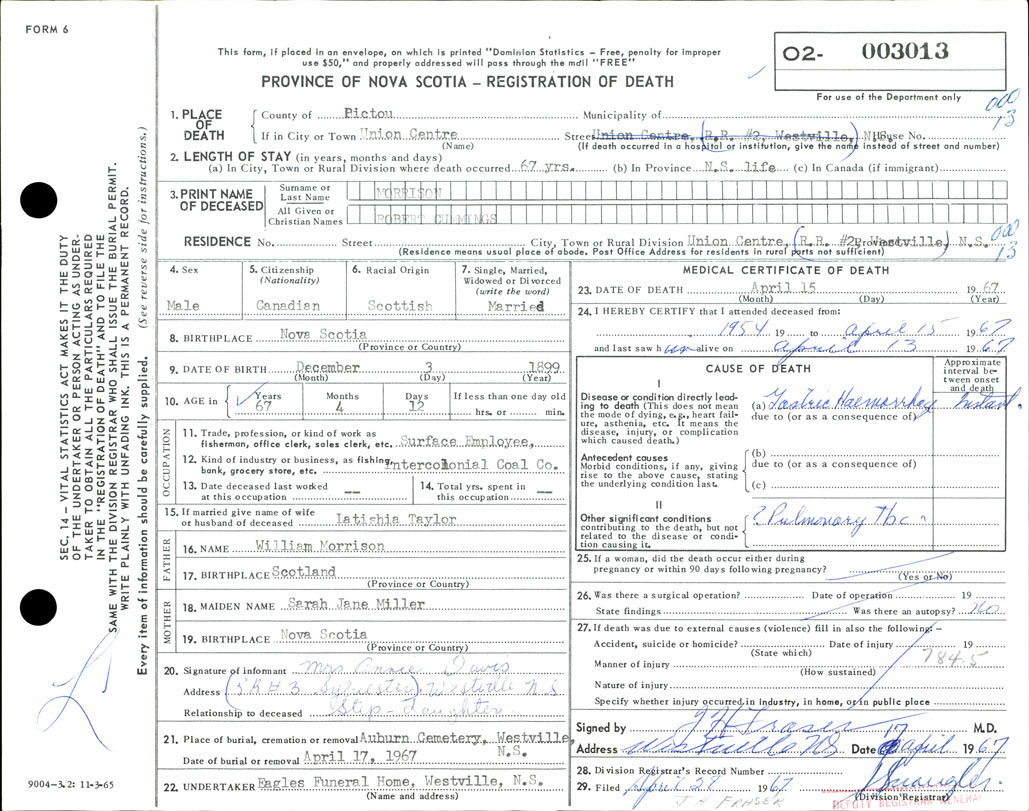 FORM 6
This form, if placed in an envelope, on which is printed "Dominion Statistics – Free, penalty for improper
use $50," and properly addressed will pass through the mail "FREE"
PROVINCE OF NOVA SCOTIA – REGISTRATION OF DEATH
02- 003013
For use of the Department only
000
13
1. PLACE OF DEATH
County of Pictou Municipality of
If in City or Town Union Centre Street Union Centre, (R.R. #2, Westville,) N.S. House No.
(Name) (If death occurred in a hospital or institution, give the name instead of street and number)
2. LENGTH OF STAY (in years, months and days)
(a) In City, Town or Rural Division where death occurred 67 yrs. (b) In Province N.S. life (c) In Canada (if immigrant)
3. PRINT NAME OF DECEASED
Surname or Last Name MORRISON
All Given or Christian Names ROBERT CUMMINGS
000
13
RESIDENCE No. Street City, Town or Rural Division Union Centre, (R.R. #2, Westville,) Province N.S.
(Residence means usual place of abode. Post Office Address for residents in rural parts not sufficient)
4. Sex
Male
5. Citizenship
(Nationality)
Canadian
6. Racial Origin
Scottish
7. Single, Married,
Widowed or Divorced
(write the word)
Married
8. BIRTHPLACE Nova Scotia
(Province or Country)
9. DATE OF BIRTH December 3 1899
(Month) (Day) (Year)
10. AGE in Years Months Days If less than one day old
67 4 12 hrs. or min.
OCCUPATION
11. Trade, profession, or kind of work as
fisherman, office clerk, sales clerk, etc. Surface Employee,
12. Kind of industry or business, as fishing,
bank, grocery store, etc. Intercolonial Coal Co.
13. Date deceased last worked
at this occupation --
14. Total yrs. spent in
this occupation --
15. If married give name of wife
or husband of deceased Latishia Taylor
FATHER
16. NAME William Morrison
17. BIRTHPLACE Scotland
(Province or Country)
MOTHER
18. MAIDEN NAME Sarah Jane Miller
19. BIRTHPLACE Nova Scotia
(Province or Country)
20. Signature of informant Mrs. Annie Davis
Address R # 3 Sylvester, Westville N S
Relationship to deceased Step-daughter
21. Place of burial, cremation or removal Auburn Cemetery, Westville, N.S.
Date of burial or removal April 17, 1967
22. UNDERTAKER Eagles Funeral Home, Westville, N.S.
(Name and address)
MEDICAL CERTIFICATE OF DEATH
23. DATE OF DEATH April 15 1967
(Month) (Day) (Year)
24. I HEREBY CERTIFY that I attended deceased from:
1954 19 to April 15 1967
and last saw him alive on April 13 1967
CAUSE OF DEATH
Approximate
interval be-
tween onset
and death
I
Disease or condition directly lead-
ing to death (This does not mean
the mode of dying, e.g., heart fail-
ure, asthenia, etc. It means the
disease, injury, or complication
which caused death.)
(a) Gastric Haemorrhag Instant.
due to (or as a consequence of)
Antecedent causes
Morbid conditions, if any, giving
rise to the above cause, stating
the underlying condition last.
(b)
due to (or as a consequence of)
(c)
II
Other significant conditions
contributing to the death, but not
related to the disease or condi-
tion causing it.
? Pulmonary Tbc ?
25. If a woman, did the death occur either during
pregnancy or within 90 days following pregnancy?
(Yes or No)
26. Was there a surgical operation? Date of operation 19
State findings Was there an autopsy? No
27. If death was due to external causes (violence) fill in also the following: –
Accident, suicide or homicide? Date of injury 19
(State which) 784.5
Manner of injury
(How sustained)
Nature of injury
Specify whether injury occurred in industry, in home, or in public place
Signed by J H Fraser M.D.
Address Westville NS Date 17 April 1967
28. Division Registrar's Record Number
29. Filed April 27 1967
(Division Registrar)
J H FRASER
DEPUTY REGISTRAR GENERAL
SEC. 14 – VITAL STATISTICS ACT MAKES IT THE DUTY
OF THE UNDERTAKER OR PERSON ACTING AS UNDER-
TAKER TO OBTAIN ALL THE PARTICULARS REQUIRED
IN THE "REGISTRATION OF DEATH" AND TO FILE THE
SAME WITH THE DIVISION REGISTRAR WHO SHALL ISSUE THE BURIAL PERMIT.
WRITE PLAINLY WITH UNFADING INK. THIS IS A PERMANENT RECORD.
Every item of information should be carefully supplied. (See reverse side for instructions.)
9004-3.2: 11-3-65